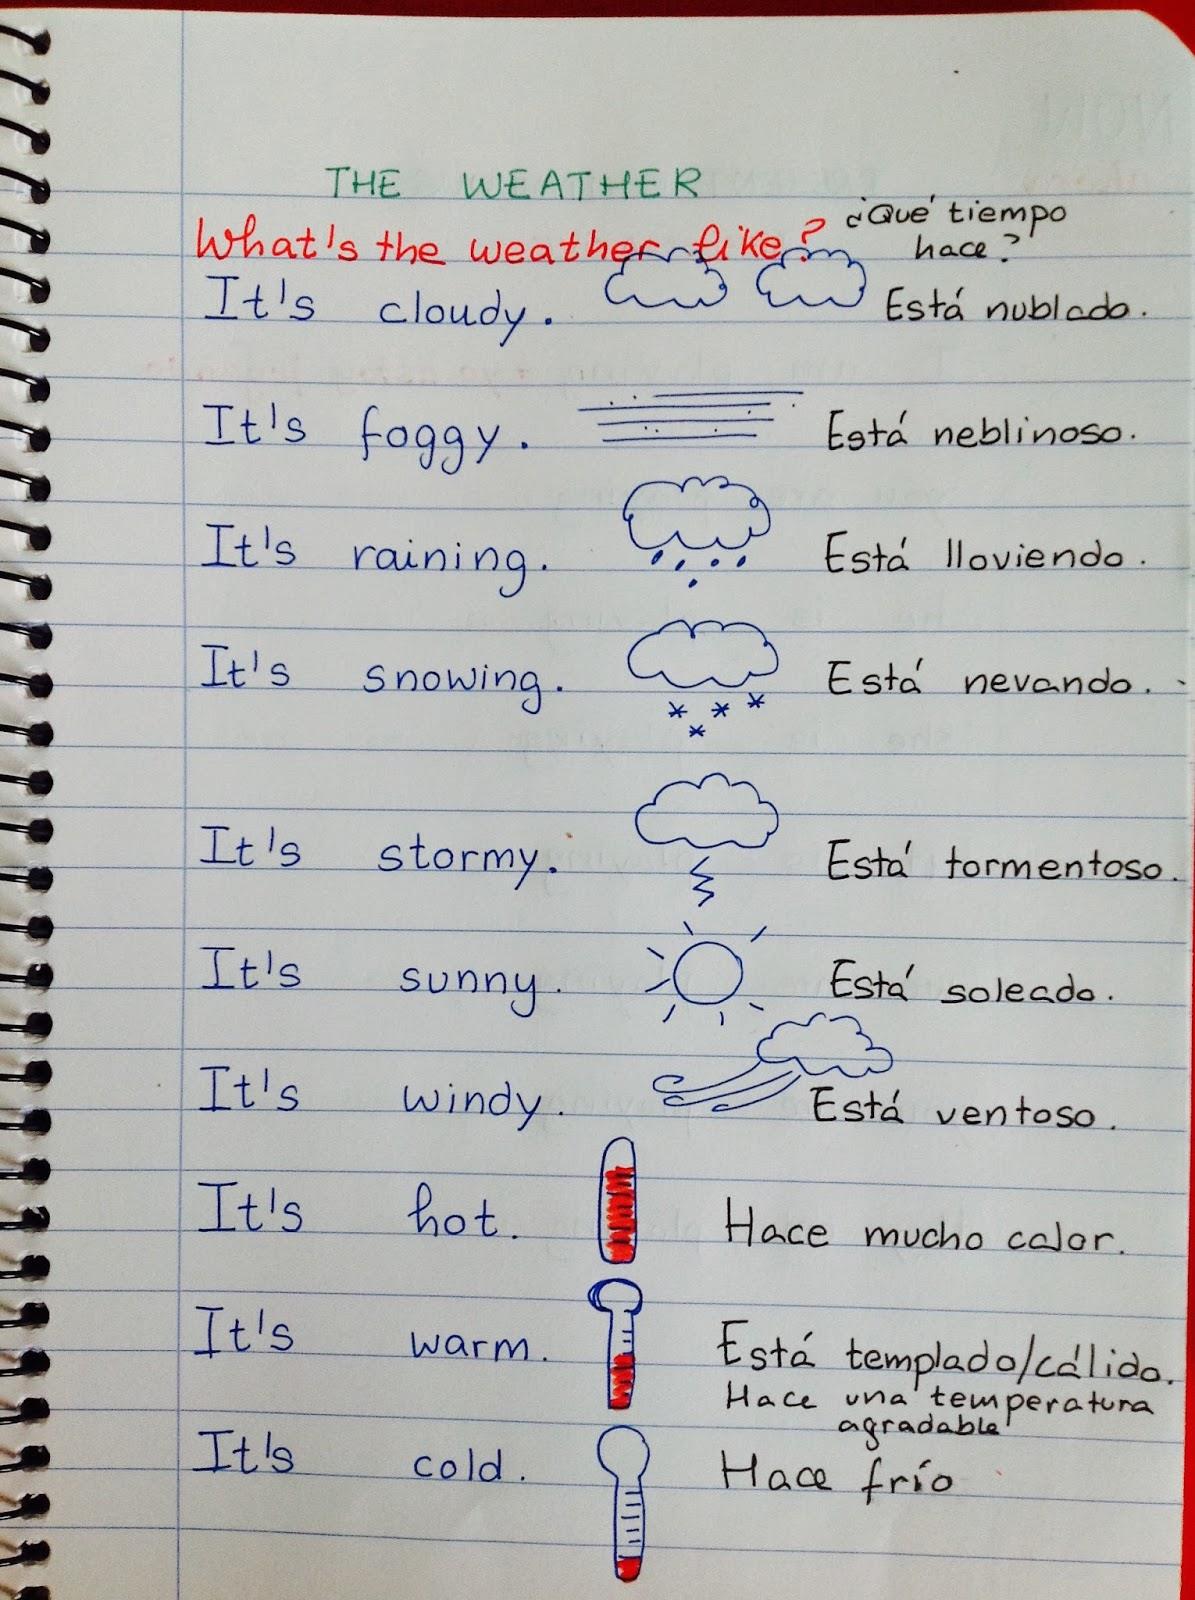 THE WEATHER
What's the weather like? ¿Qué tiempo
hace?
It's cloudy. Está nublado.
It's foggy. Está neblinoso.
It's raining. Está lloviendo.
It's snowing. Está nevando.
It's stormy. Está tormentoso.
It's sunny. Está soleado.
It's windy. Está ventoso.
It's hot. Hace mucho calor.
It's warm. Está templado/cálido.
Hace una temperatura
agradable
It's cold. Hace frío